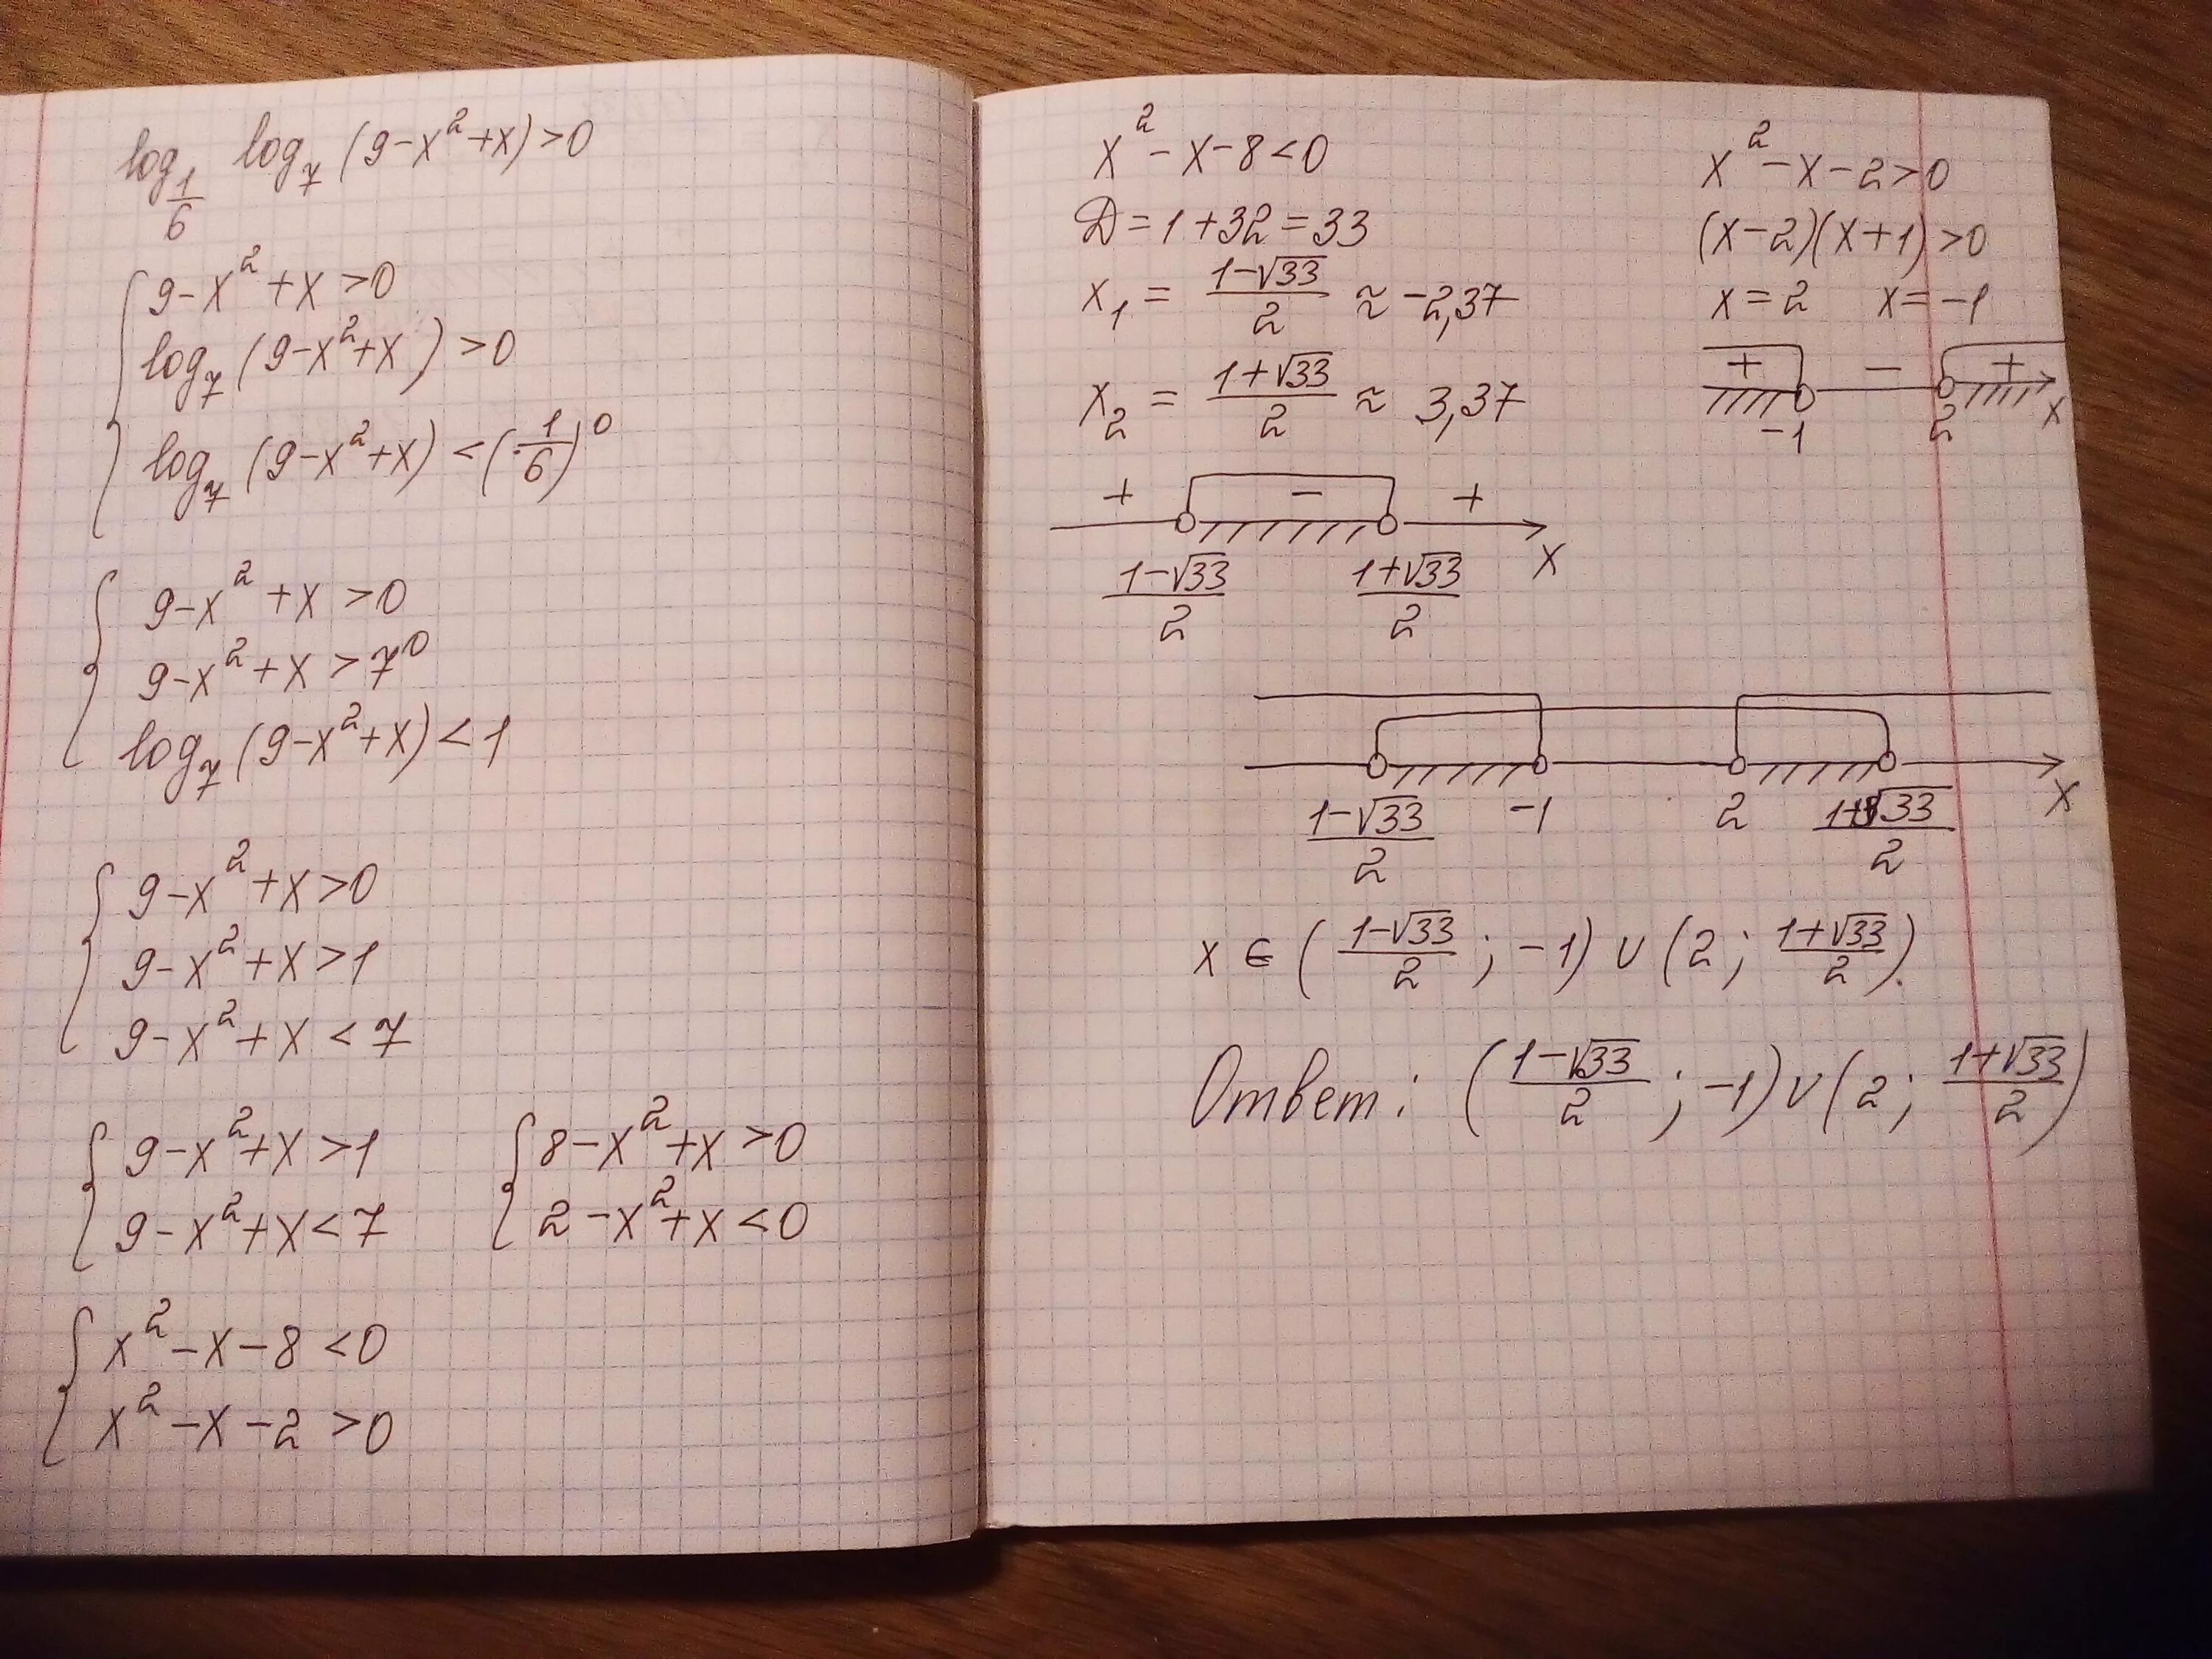 log_{1/6} log_7 (9-x²+x)>0
9-x²+x>0
log_7 (9-x²+x)>0
log_7 (9-x²+x)<(1/6)⁰
9-x²+x>0
9-x²+x>7⁰
log_7 (9-x²+x)<1
9-x²+x>0
9-x²+x>1
9-x²+x<7
9-x²+x>1 8-x²+x>0
9-x²+x<7 2-x²+x<0
x²-x-8<0
x²-x-2>0
x²-x-8<0
D=1+32=33
x₁ = (1-√33)/2 ≈ -2,37
x₂ = (1+√33)/2 ≈ 3,37
+ - +
(1-√33)/2 (1+√33)/2 x
x²-x-2>0
(x-2)(x+1)>0
x=2 x=-1
+ - +
-1 2 x
(1-√33)/2 -1 2 (1+√33)/2 x
x ∈ ((1-√33)/2; -1) ∪ (2; (1+√33)/2).
Ответ: ((1-√33)/2; -1) ∪ (2; (1+√33)/2)